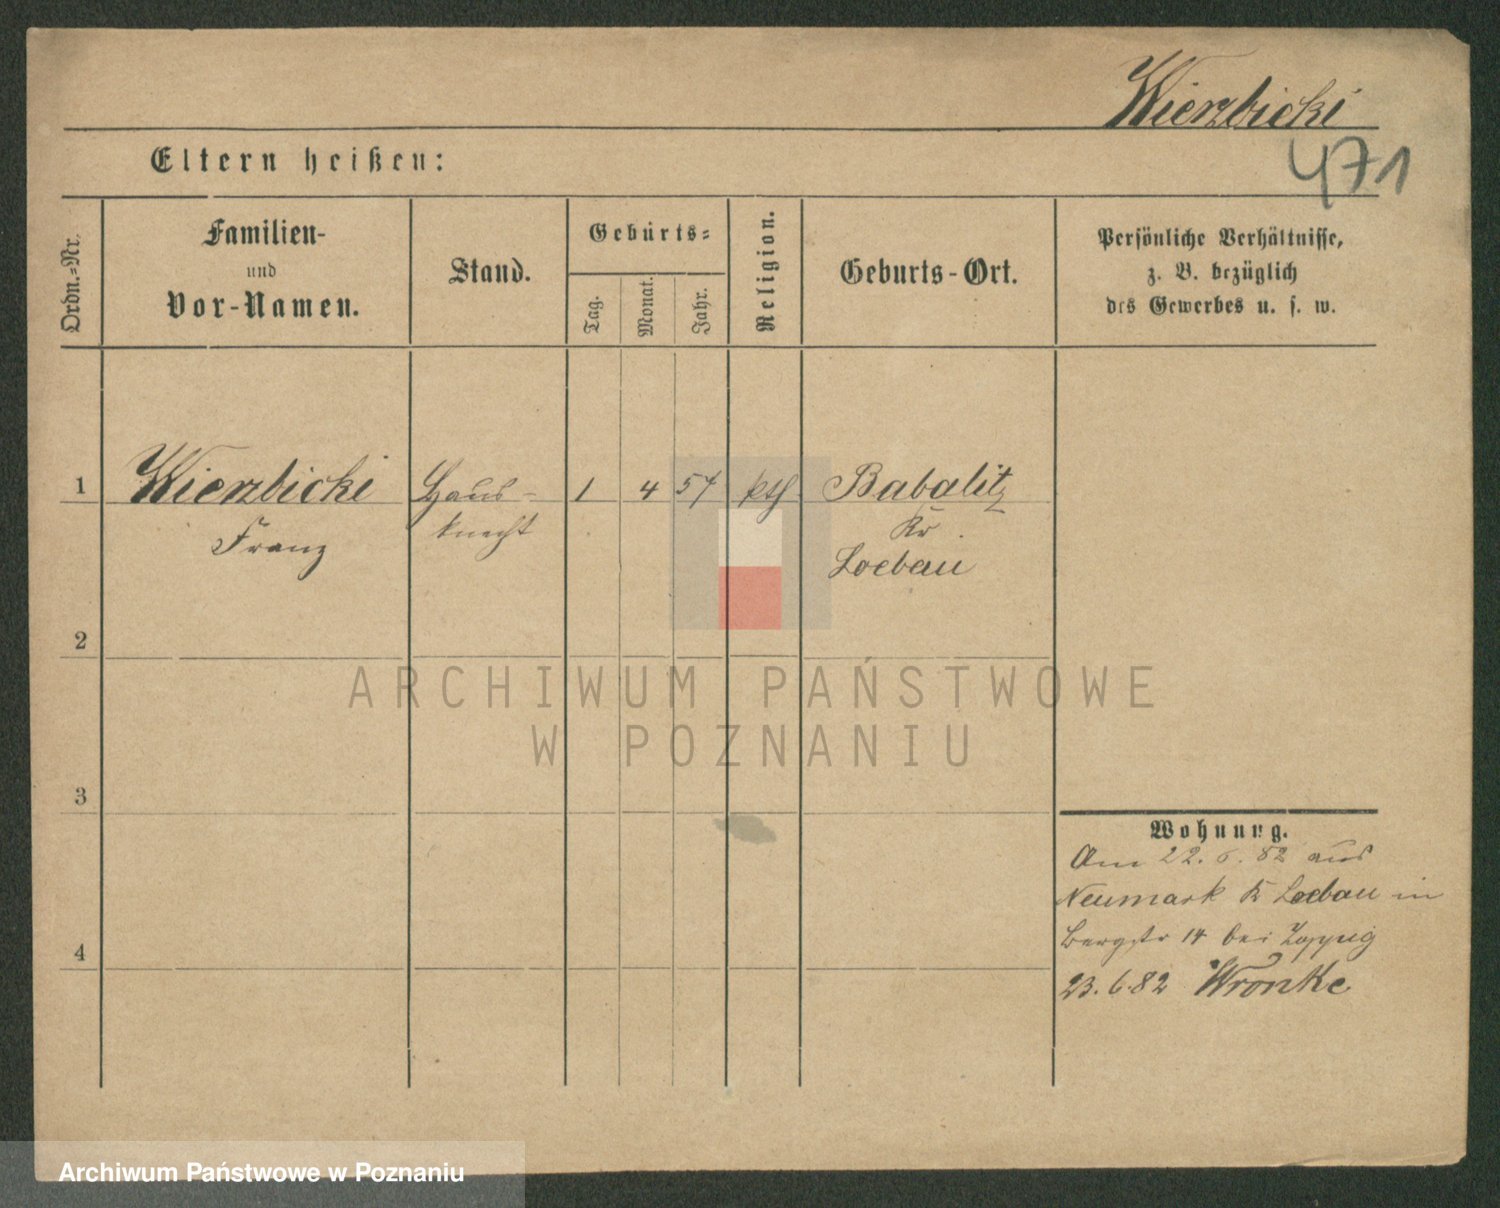 Wierzbicki
471
Eltern heißen:
Ordn.-Nr.
Familien-
und
Vor-Namen.
Stand.
Geburts-
Tag.
Monat.
Jahr.
Religion.
Geburts-Ort.
Persönliche Verhältnisse,
z. B. bezüglich
des Gewerbes u. s. w.
1 Wierzbicki Haus- 1 4 57 kth Babalitz
Franz knecht Kr.
Loebau
2
3
4
ARCHIWUM PAŃSTWOWE
W POZNANIU
Wohnung.
Am 22. 6. 82 aus
Neumark K Loebau in
Bergstr 14 bei
23. 6. 82 Wronke
Archiwum Państwowe w Poznaniu